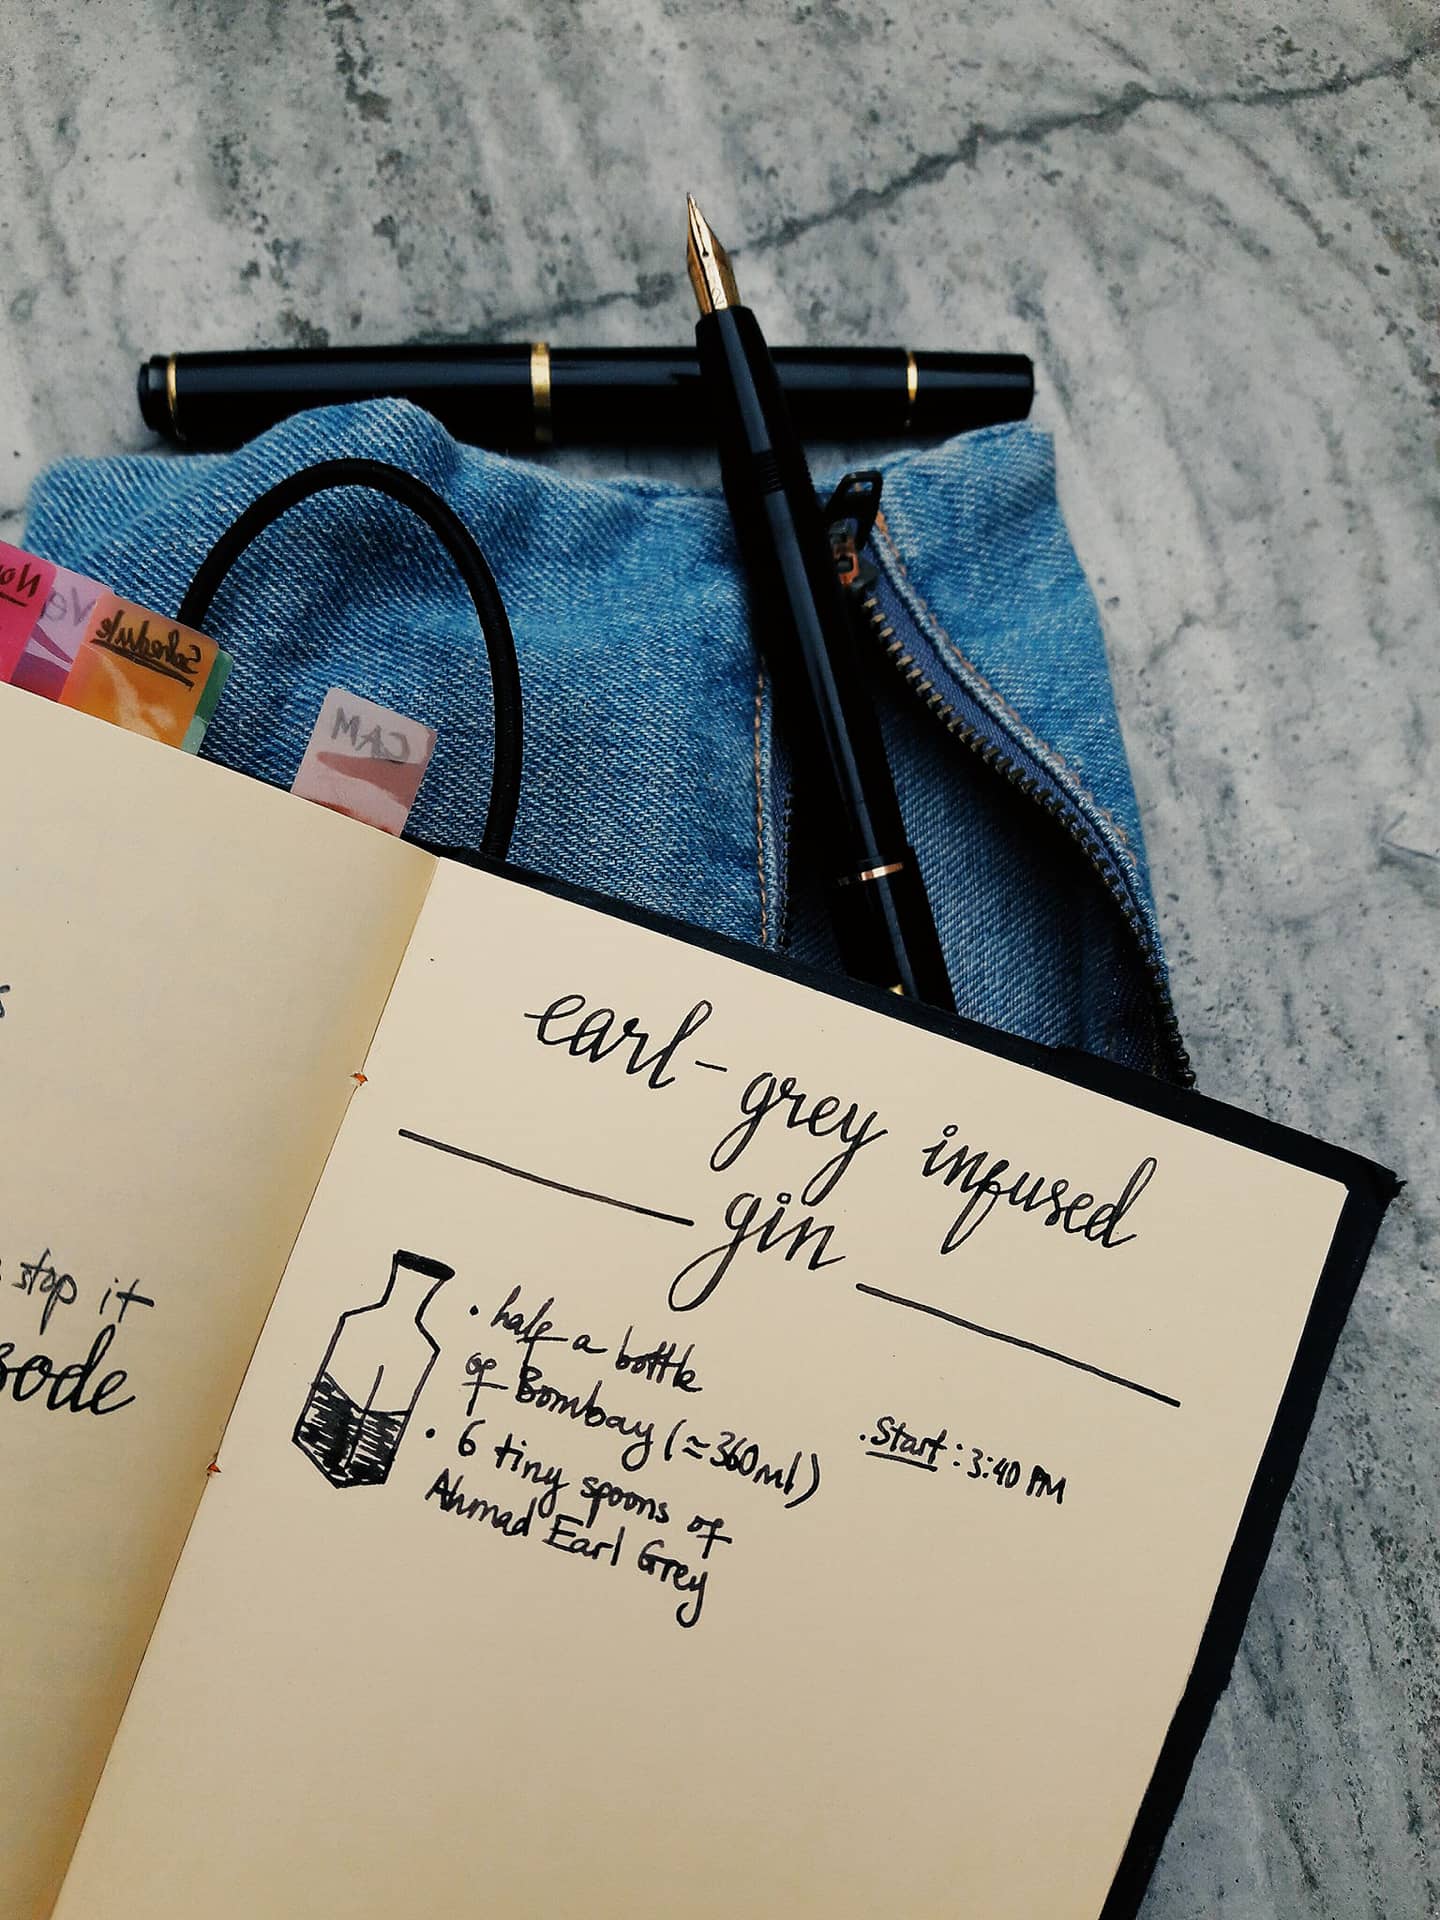 Schedule
CAM
stop it
earl-grey infused
gin
• half a bottle
of Bombay (≈360ml)
• 6 tiny spoons of
Ahmad Earl Grey
. Start : 3:40 PM